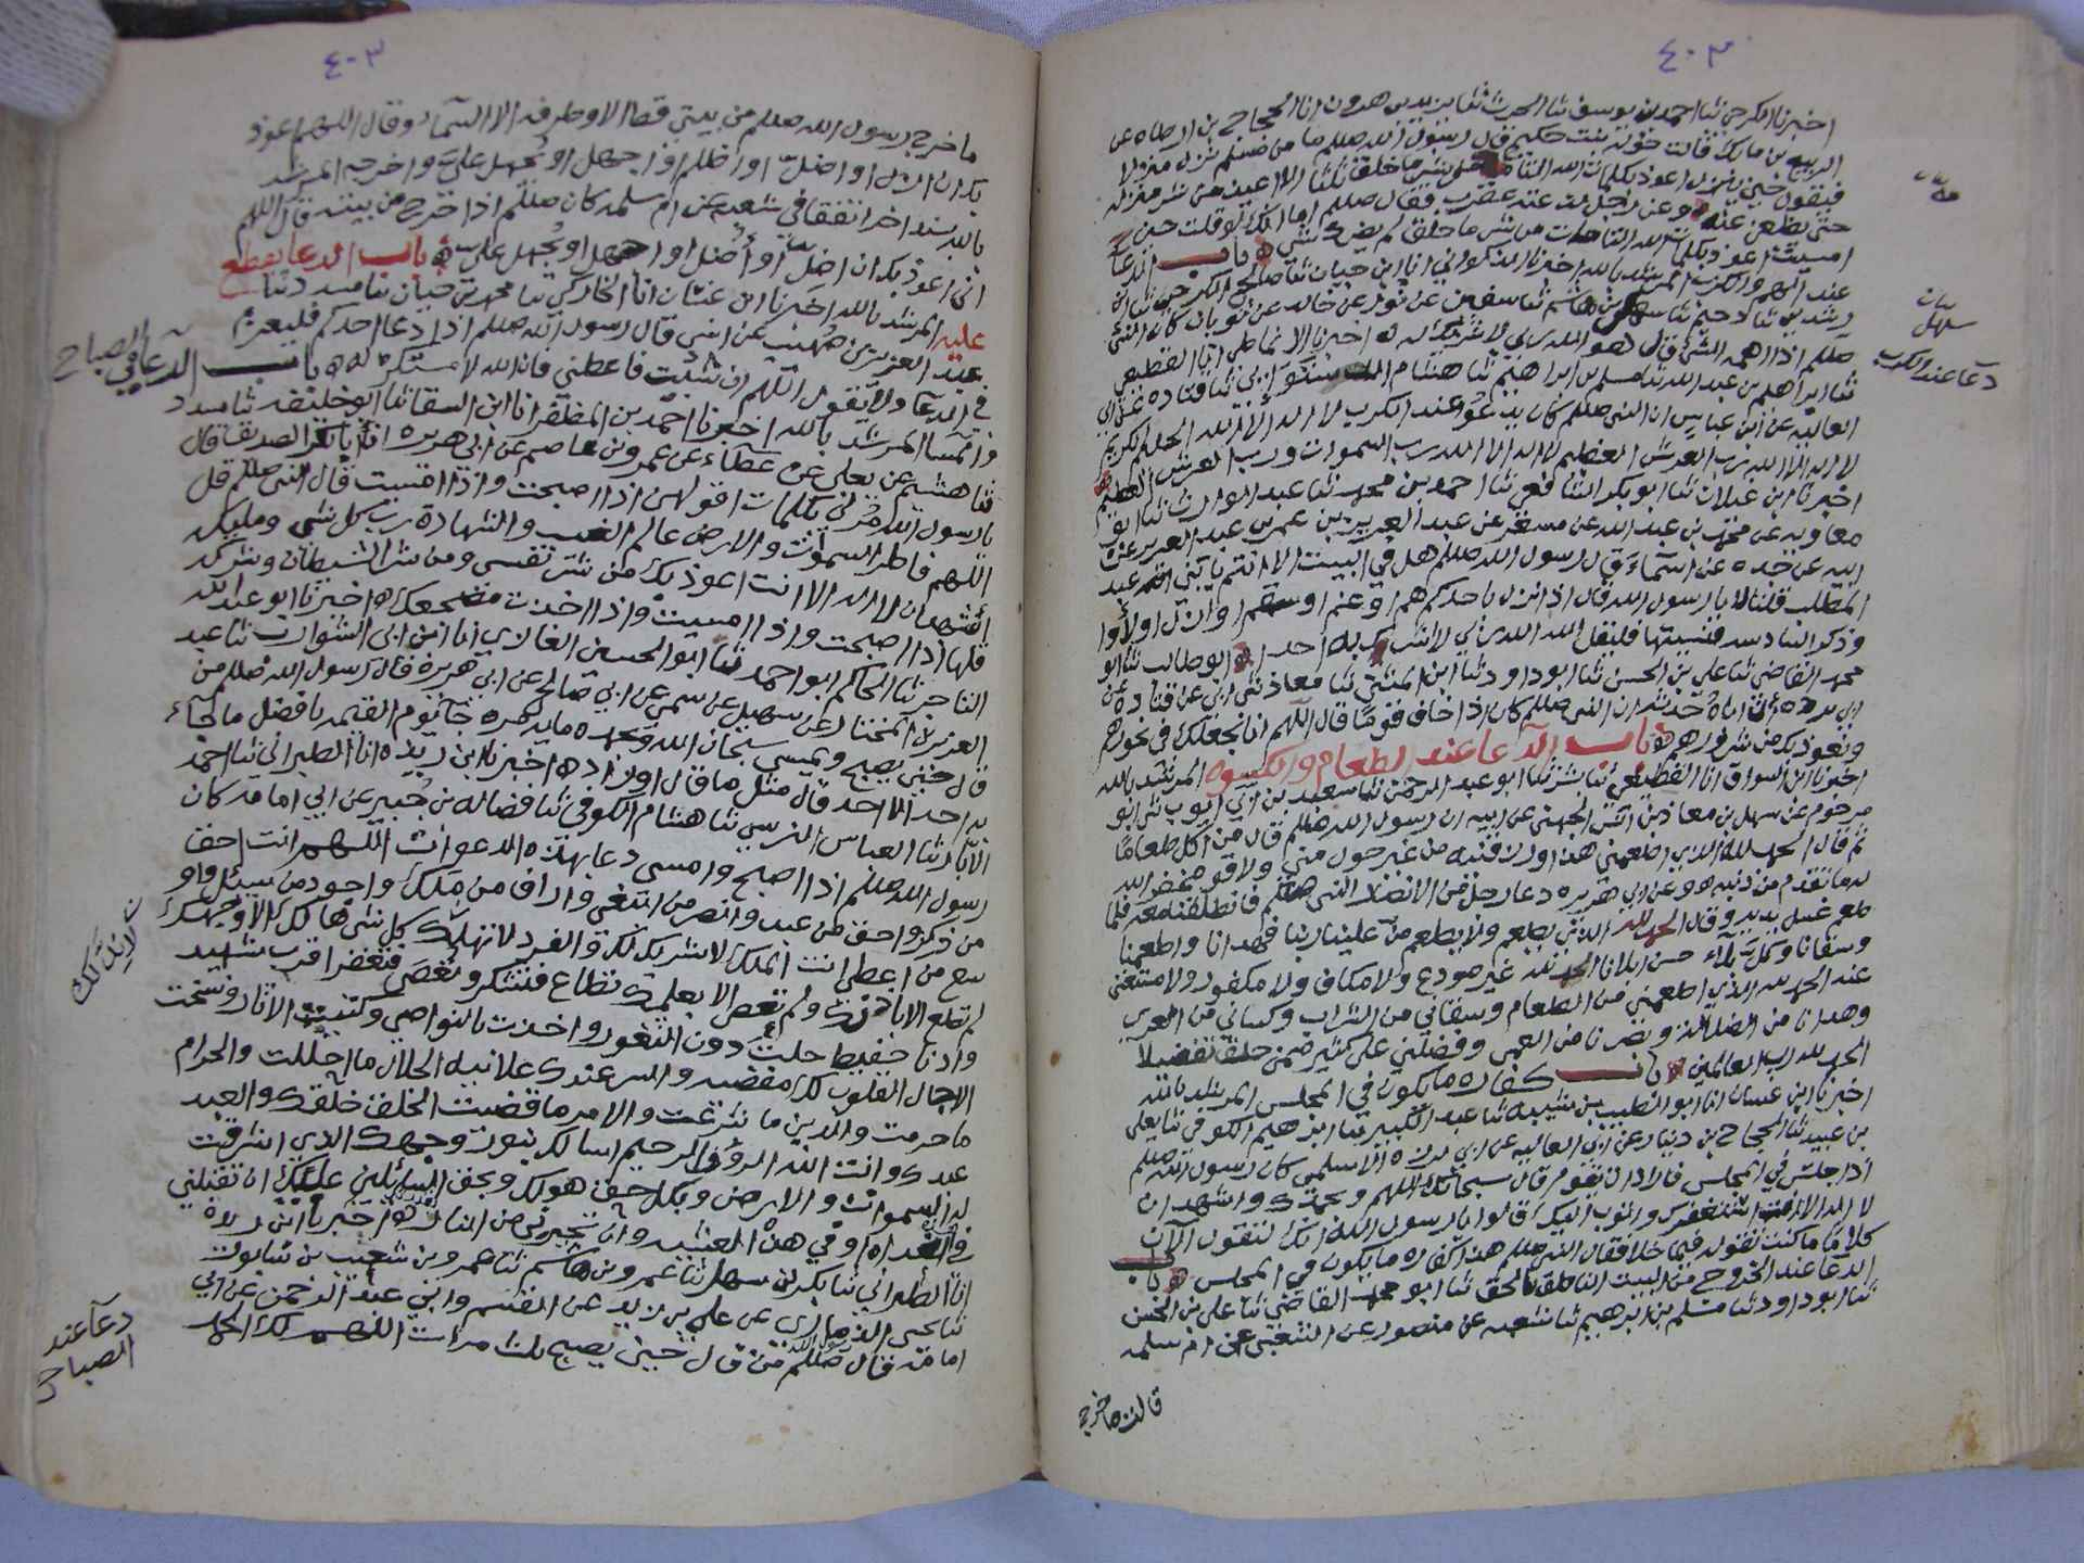 ٤٠٣
اخبرنا الكرجي ثنا احمد بن يوسف ثنا الحرث ثنا يزيد بن هرون انا الحجاج بن ارطاه عن
الربيع بن مالك قالت خولة بنت حكيم قال رسول الله صللم ما من مسلم نزل منزلا
فيقول حين ينزل اعوذ بكلمات الله التامات من شر ما خلق ثلثا الا اعيذ من شر منزله
حتى يظعن عنه وعن رجل لدغته عقرب فقال صللم اما انك لو قلت حين
امسيت اعوذ بكلمات الله التامات من شر ما خلق لم يضرك شي باب الدعا
عند الهم والكرب المرشد بالله اخبرنا الذكواني انا ابن حيان ثنا صالح الكرجي ثنا ابن
رشدين ثنا دحيم ثنا سهل بن هاشم ثنا سفين عن ثور عن خالد عن ثوبان كان النبي
صللم اذا اهمه الشي قال هو الله ربي لا شريك له اخبرنا الانماطي انا القطيعي
ثنا ابراهيم بن عبد الله ثنا مسلم بن ابراهيم ثنا هشام الدستوائي ثنا قتاده عن ابي
العاليه عن ابن عباس ان النبي صللم كان يدعو عند الكرب لا اله الا الله الحليم الكريم
لا اله الا الله رب العرش العظيم لا اله الا الله رب السموات ورب العرش العظيم
اخبرنا ابن غيلان ثنا ابو بكر الشافعي ثنا احمد بن محمد ثنا عبد الوارث ثنا ابو
معاويه عن محمد بن عبد الله عن مسعر عن عبد العزيز بن عمر بن عبد العزيز عن
ابيه عن جده عن اسماء قال رسول الله صللم هل في البيت الا انتم يا بني عبد
المطلب قلنا لا يا رسول الله قال اذا نزل باحدكم هم او غم او سقم او ازل او لاوا
وذكر السادسه فنسيتها فليقل الله الله ربي لا اشرك به احدا ابو طالب ثنا ابو
محمد القاضي ثنا علي بن الحسن ثنا ابو داود ثنا ابن المثنى ثنا معاذ ثني ابي عن قتاده عن
ابي برده ان اباه حدثه ان النبي صللم كان اذا خاف قوما قال اللهم انا نجعلك في نحورهم
ونعوذ بك من شرورهم باب الدعا عند الطعام والكسوه المرشد بالله
اخبرنا ابن السواق انا القطيعي ثنا بشر ثنا ابو عبد الرحمن ثنا سعيد بن ابي ايوب ثني ابو
مرحوم عن سهل بن معاذ بن انس الجهني عن ابيه ان رسول الله صللم قال من اكل طعاما
ثم قال الحمد لله الذي اطعمني هذا ورزقنيه من غير حول مني ولا قوه غفر الله
له ما تقدم من ذنبه وعن ابي هريره دعا رجل من الانصار النبي صللم فانطلقنا معه فلما
طعم غسل يديه وقال الحمد لله الذي يطعم ولا يطعم من علينا ربنا فهدانا واطعمنا
وسقانا وكل بلاء حسن ابلانا الحمد لله غير مودع ولا مكاف ولا مكفور ولا مستغنى
عنه الحمد لله الذي اطعمني من الطعام وسقاني من الشراب وكساني من العري
وهدانا من الضلاله وبصرنا من العمى وفضلني على كثير ممن خلق تفضيلا
الحمد لله رب العالمين باب كفاره ما يكون في المجلس المرشد بالله
اخبرنا ابن غسان انا ابو الطيب بن شيبه ثنا عبد الكبير ثنا ابرهيم الكوفي ثنا يعلى
بن عبيد ثنا الحجاج بن دينار عن ابي العاليه عن ابي برزه الاسلمي كان رسول الله صللم
اذا جلس في المجلس فاراد ان يقوم قال سبحانك اللهم وبحمدك واشهد ان
لا اله الا انت استغفرك واتوب اليك قالوا يا رسول الله انك لتقول الآن
كلاما ما كنت تقوله فيما خلا فقال النبي صللم هذا كفاره ما يكون في المجلس باب
الدعا عند الخروج من البيت الناطق بالحق ثنا ابو محمد القاضي ثنا علي بن الحسن
ثنا ابو داود ثنا مسلم بن ابرهيم ثنا شعبه عن منصور عن الشعبي عن ام سلمه
قالت ما خرج
سهل
دعا عند الكرب
٤٠٣
ما خرج رسول الله صللم من بيتي قط الا وطرفه الى السماء وقال اللهم اعوذ
بك ان ازل او اضل او اظلم او اجهل او يجهل علي واخرجه المرشد
بالله بسند اخر اتفقا في شعبه عن ام سلمه كان صللم اذا خرج من بيته قال اللهم
اني اعوذ بك ان اضل او أضل او اجهل او يجهل علي باب الدعا يقطع
عليه المرشد بالله اخبرنا ابن غسان انا الخاركي ثنا محمد بن حيان ثنا مسدد ثنا
عبد العزيز بن صهيب عن انس قال رسول الله صللم اذا دعا احدكم فليعزم
في الدعا ولا يقول اللهم ان شئت فاعطني فان الله لا مستكره له باب الدعا في الصباح
والمسا المرشد بالله اخبرنا احمد بن المظفر انا ابن السقا ثنا ابو خليفه ثنا مسدد
ثنا هشيم عن يعلى بن عطاء عن عمرو بن عاصم عن ابي هريره ان ابا بكر الصديق قال
يا رسول الله مرني بكلمات اقولهن اذا اصبحت واذا امسيت قال النبي صللم قل
اللهم فاطر السموات والارض عالم الغيب والشهادة رب كل شي ومليكه
اشهد ان لا اله الا انت اعوذ بك من شر نفسي ومن شر الشيطان وشركه
قلها اذا اصبحت واذا امسيت واذا اخذت مضجعك اخبرنا ابو عبد الله
التاجر ثنا الحاكم ابو احمد ثنا ابو الحسين الغازي انا ابن ابي الشوارب ثنا عبد
العزيز بن المختار عن سهيل عن سمي عن ابي صالح عن ابي هريرة قال رسول الله صللم من
قال حين يصبح ويمسي سبحان الله وبحمده مايه مره جا يوم القيمه بافضل ما جاء
به احد الا احد قال مثل ما قال او زاده اخبرنا ابن ريذه انا الطبراني ثنا احمد
الابار ثنا العباس النرسي ثنا هشام الكوفي ثنا فضاله بن جبير عن ابي امامه كان
رسول الله صللم اذا اصبح وامسى دعا بهذه الدعوات اللهم انت احق
من ذكر واحق من عبد وانصر من ابتغي واراف من ملك واجود من سيل واو
سع من اعطى انت الملك لا شريك لك والفرد لا تهلك كل شي هالك الا وجهك
لن تطع الا باذنك ولم تعص الا بعلمك تطاع فتشكر وتعصى فتغفر اقرب شهيد
وادنا حفيظ حلت دون الثغور واخذت بالنواصي وكتبت الاثار ونسخت
الاجال القلوب لك مفضيه والسر عندك علانيه الحلال ما احللت والحرام
ما حرمت والدين ما شرعت والامر ما قضيت الخلق خلقك والعبد
عبدك وانت الله الرؤف الرحيم اسالك بنور وجهك الذي اشرقت
له السموات والارض وبكل حق هو لك وبحق السائلين عليك ان تقيلني
في الغداه او في هذه العشيه وان تجيرني من النار اخبرنا ابن ريذه
انا الطبراني ثنا بكر بن سهل ثنا عمرو بن هاشم ثنا محمد بن شعيب بن شابور
ثنا يحيى الذماري عن علي بن يزيد عن القسم وابي عبد الرحمن عن ابي
امامه قال رسول الله صللم من قال حين يصبح ثلث مرات اللهم لك الحمد
لا ند لك
دعا عند
الصباح